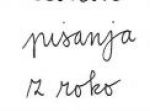 pisanja
z roko